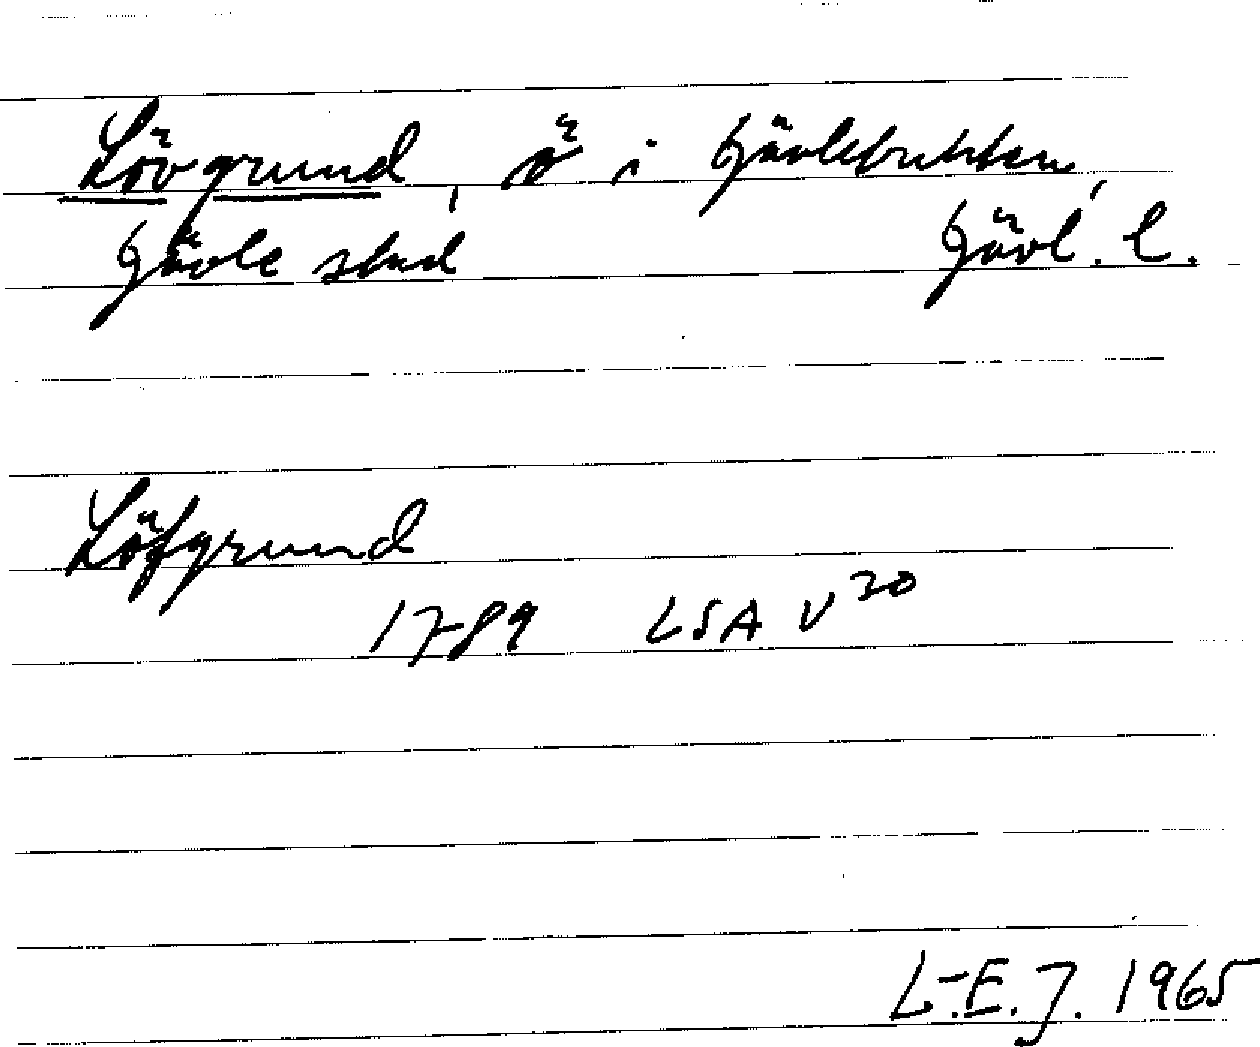 Lövgrund, ö i Gävlebukten,
Gävle stad Gävl. l.
Löfgrund
1789 LSA V 20
L-E. J. 1965